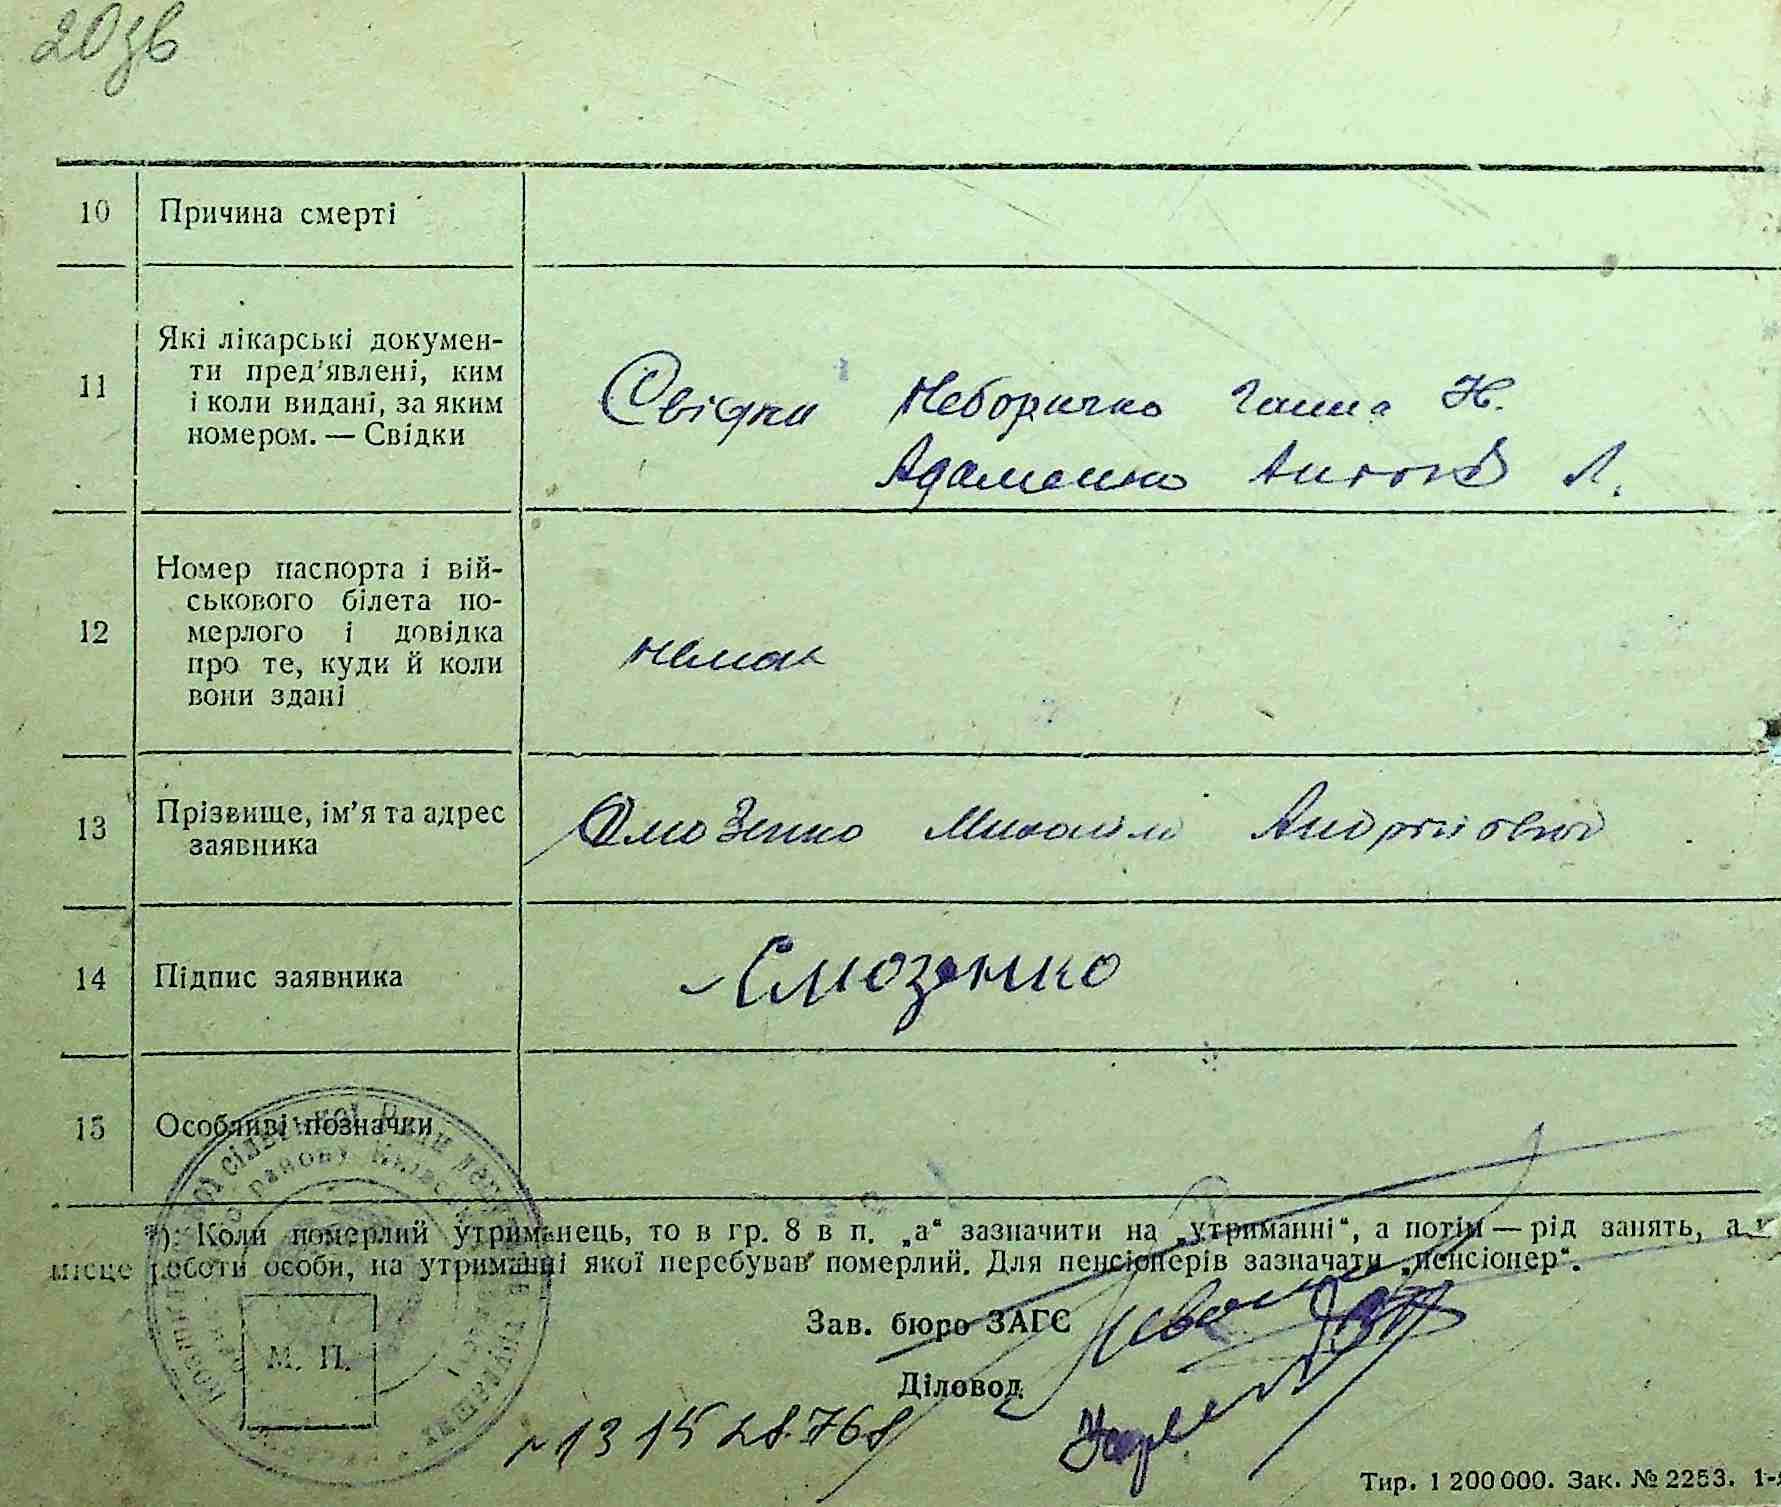 20зв
10 Причина смерті
11 Які лікарські докумен-
ти пред'явлені, ким
і коли видані, за яким
номером. — Свідки
Свідки Неборачко Ганна Н.
Адаменко Антон Л.
12 Номер паспорта і вій-
ськового білета по-
мерлого і довідка
про те, куди й коли
вони здані
немає
13 Прізвище, ім'я та адрес
заявника
Михайло Андрійович
14 Підпис заявника
15 Особливі позначки
*) Коли померлий утриманець, то в гр. 8 в п. „а“ зазначити на „утриманні“, а потім — рід занять, а
місце роботи особи, на утриманні якої перебував померлий. Для пенсіонерів зазначати „пенсіонер“.
Зав. бюро ЗАГС
Діловод
М. П.
Тир. 1 200 000. Зак. № 2253.